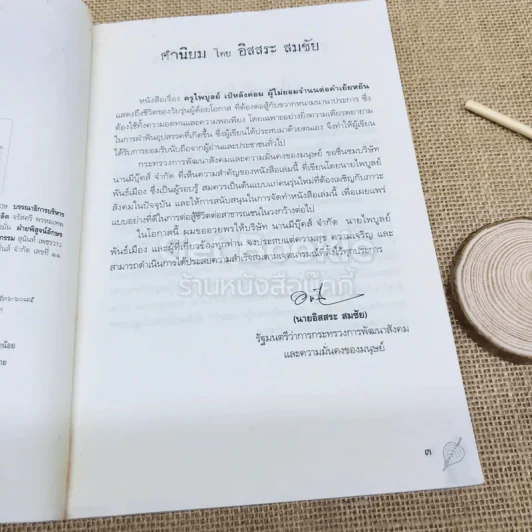 คำนิยม โดย อิสสระ สมชัย
หนังสือเรื่อง ครูไพบูลย์ เป๋หลังค่อม ผู้ไม่ยอมจำนนต่อคำเย้ยหยัน
แสดงถึงชีวิตของวัยรุ่นผู้ด้อยโอกาส ที่ต้องต่อสู้กับขวากหนามนานาประการ ซึ่ง
ต้องใช้ทั้งความอดทนและความพอเพียง โดยเฉพาะอย่างยิ่งความเพียรพยายาม
ในการฝ่าฟันอุปสรรคที่เกิดขึ้น ซึ่งผู้เขียนได้ประสบมาด้วยตนเอง จึงทำให้ผู้เขียน
ได้รับการยอมรับนับถือจากผู้อ่านและประชาชนทั่วไป
กระทรวงการพัฒนาสังคมและความมั่นคงของมนุษย์ ขอชื่นชมบริษัท
นานมีบุ๊คส์ จำกัด ที่เห็นความสำคัญของหนังสือเล่มนี้ ที่เขียนโดยนายไพบูลย์
พันธ์เมือง ซึ่งเป็นผู้รอบรู้ สมควรเป็นต้นแบบแก่คนรุ่นใหม่ที่ต้องเผชิญกับภาวะ
สังคมในปัจจุบัน และให้การสนับสนุนในการจัดทำหนังสือเล่มนี้ เพื่อเผยแพร่
แบบอย่างที่ดีในการต่อสู้ชีวิตต่อสาธารณชนในวงกว้างต่อไป
ในโอกาสนี้ ผมขออวยพรให้บริษัท นานมีบุ๊คส์ จำกัด นายไพบูลย์
พันธ์เมือง และผู้ที่เกี่ยวข้องทุกท่าน จงประสบแต่ความสุข ความเจริญ และ
สามารถดำเนินการได้ประสบความสำเร็จสมตามเจตนารมณ์ที่ตั้งไว้ทุกประการ
ร้านหนังสือบุ๊คกี้
(นายอิสสระ สมชัย)
รัฐมนตรีว่าการกระทรวงการพัฒนาสังคม
และความมั่นคงของมนุษย์
๓
บรรณาธิการบริหาร
ฝ่ายพิสูจน์อักษร
จำกัด เลขที่ ๑๑